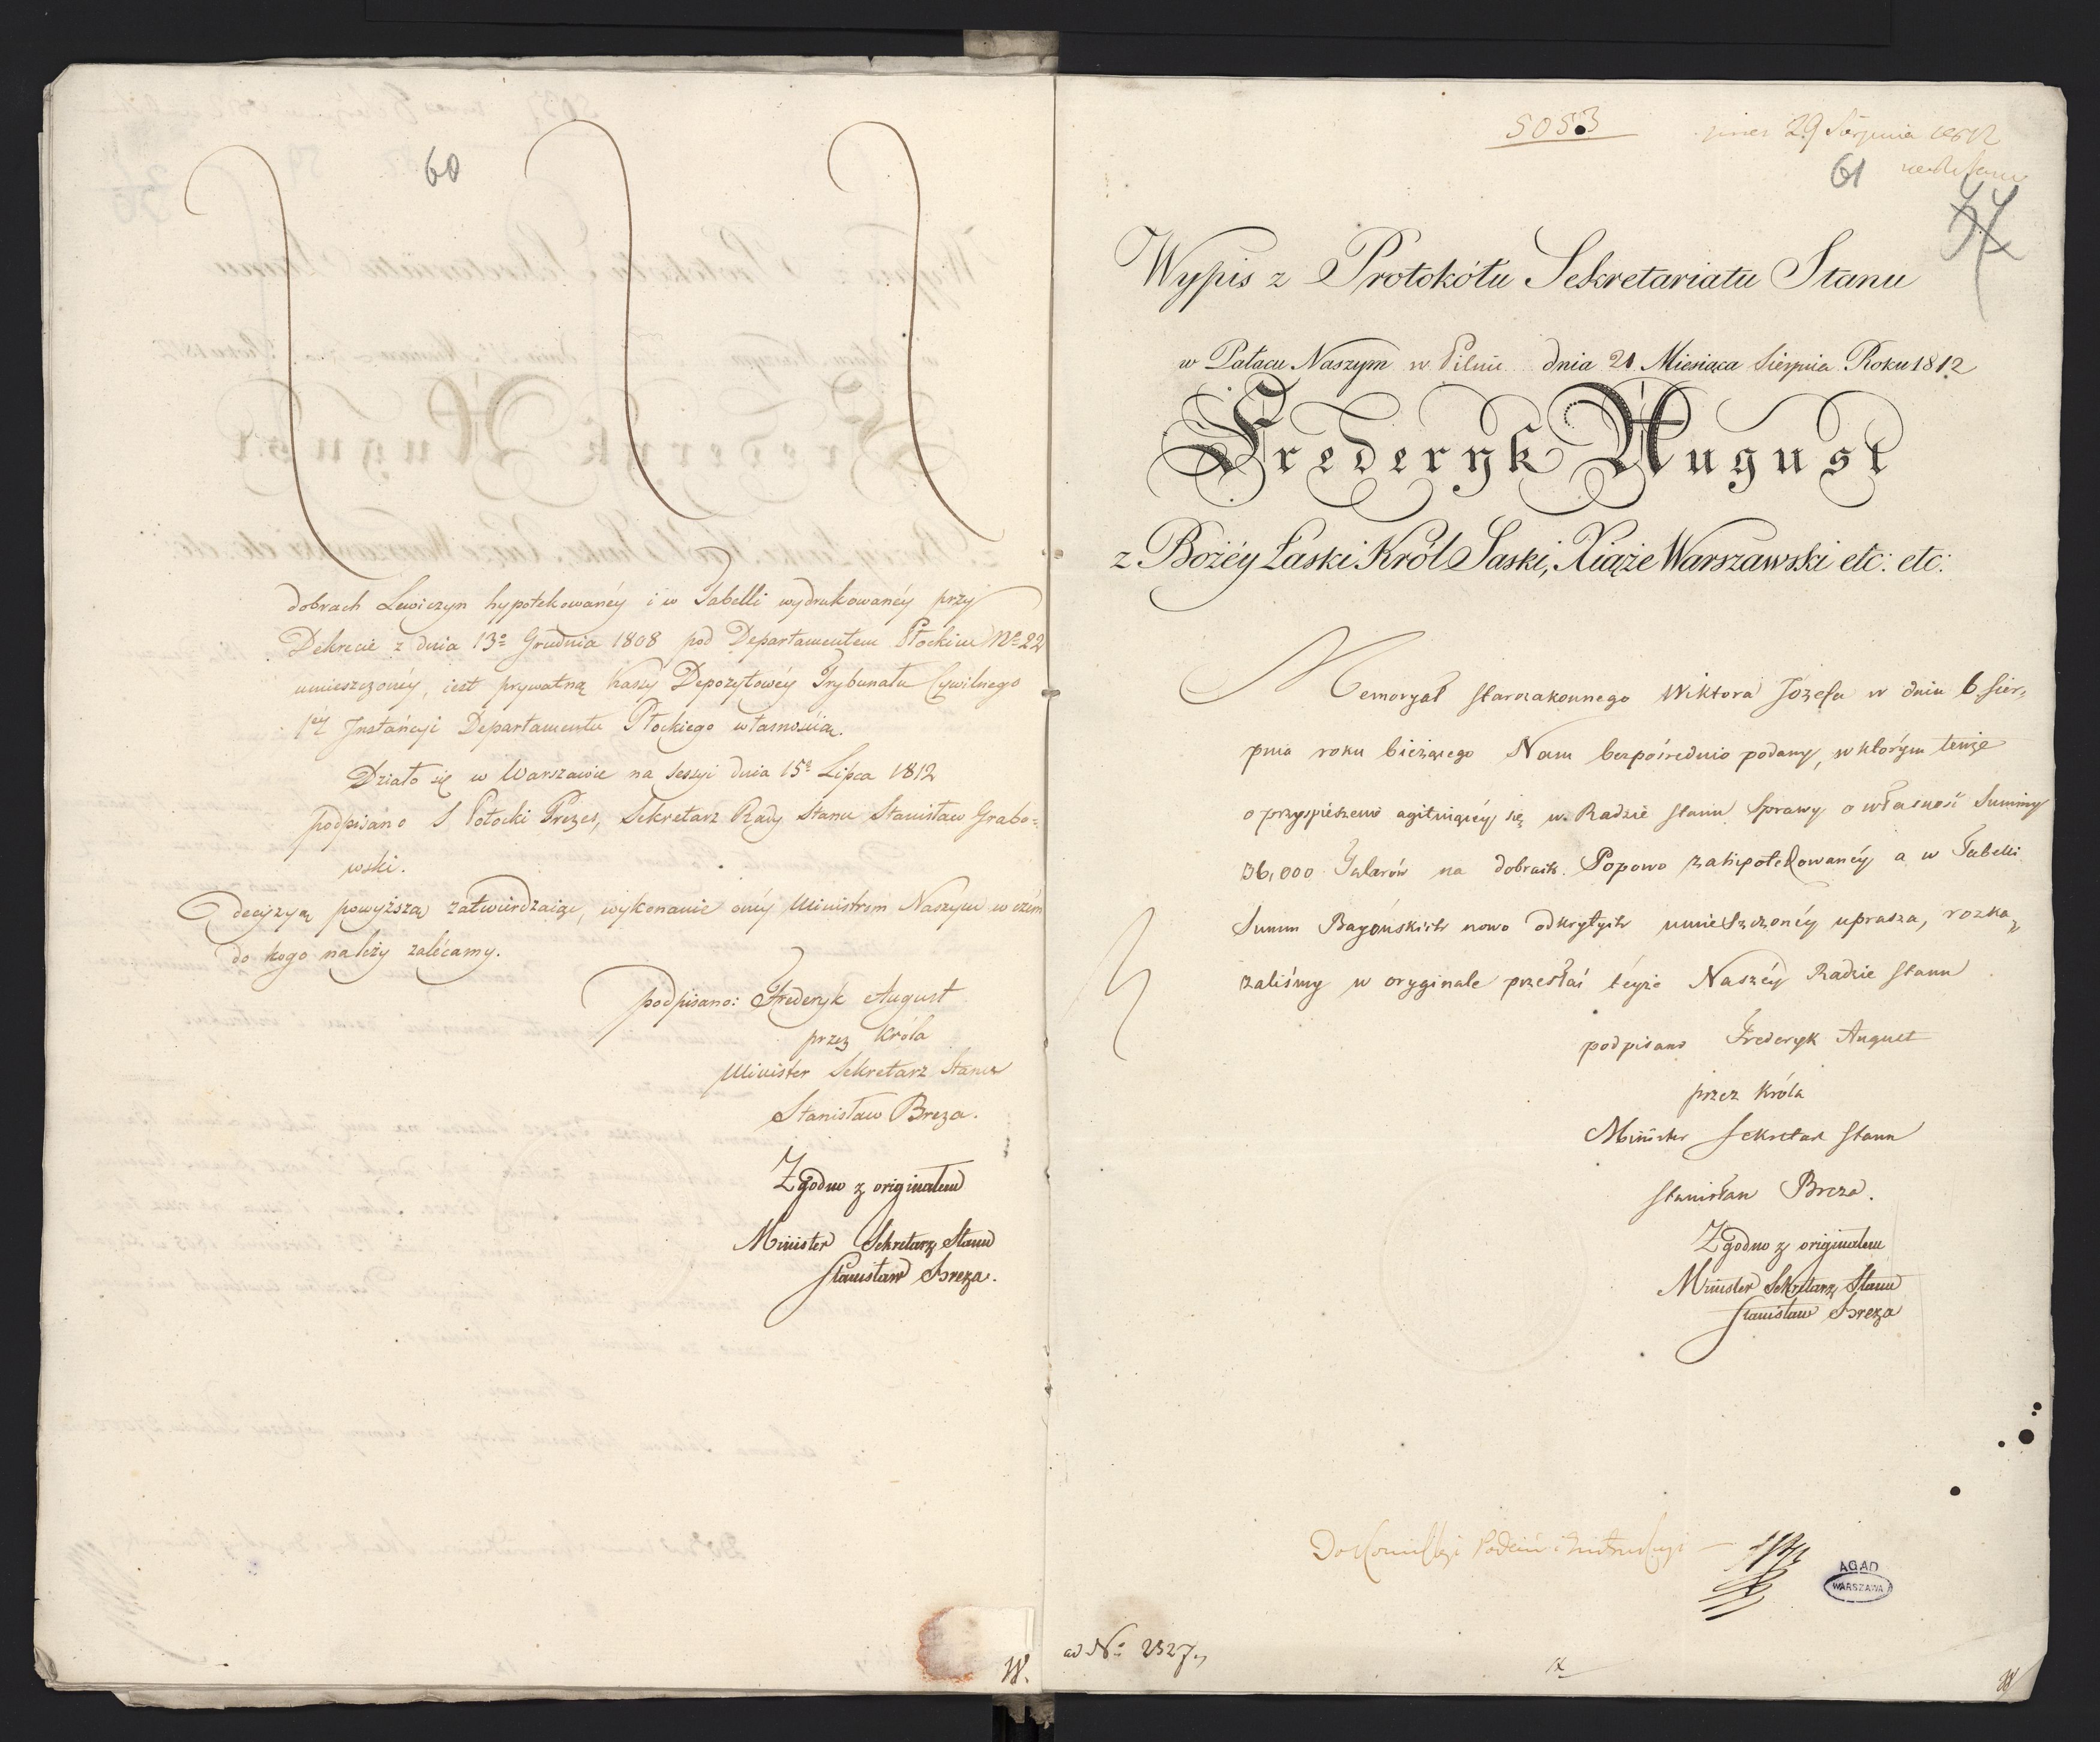 60
dobrach Lewiczyn hypotekowanéy i w Tabelli wydrukowanéy przy
Dekrecie z dnia 13º Grudnia 1808 pod Departamentem Płockim Nº 22
umieszczonéy, iest prywatną kassy Depozytowéy Trybunału Cywilnego
1éy Instancyi Departamentu Płockiego własnością.
Działo się w Warszawie na Sessyi dnia 15º Lipca 1812
podpisano S Potocki Prezes, Sekretarz Rady Stanu Stanisław Grabo=
wski.
decyzyą powyższą zatwierdzaiąc, wykonanie onéy Ministrom Naszym w czém
do kogo należy zalécamy.
podpisano: Frederyk August
przez Króla
Minister Sekretarz Stanu
Stanisław Breza.
Zgodno z originałem
Minister Sekretarz Stanu
Stanisław Breza.
W.
5053
29 Sierpnia 1812
61
Wypis z Protokółu Sekretariatu Stanu
w Pałacu Naszym w Pilnic dnia 21 Miesiąca Sierpnia Roku 1812
Frederyk August
z Bożéy Łaski Król Saski, Xiąże Warszawski etc: etc:
Memoryał starozakonnego Wiktora Józefa w dniu 6 Sier=
pnia roku bieżącego Nam bezpośrednio podany, w którym tenże
o przyspieszenie agituiącéy się w Radzie Stanu Sprawy o własność Summy
36,000 Talarów na dobrach Popowo zahipotekowanéy a w Tabelli
Summ Bayońskich nowo odkrytych umieszczonéy uprasza, rozka=
zaliśmy w oryginale przesłać téyże Naszéy Radzie Stanu
podpisano Frederyk August
przez Króla
Minister Sekretarz Stanu
Stanisław Breza.
Zgodno z originałem
Minister Sekretarz Stanu
Stanisław Breza
Do Kommissyi Podań i Instrukcyi —
AGAD
WARSZAWA
ad Nº 2527.
W